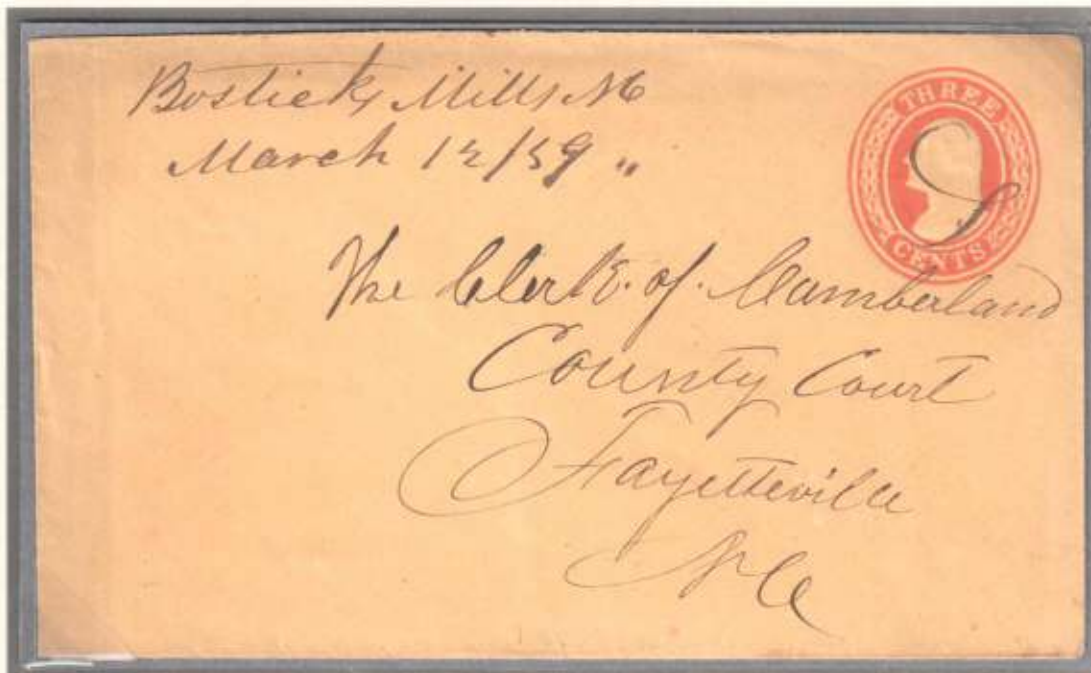 Bosticks Mills NC
March 12/59 "
THREE
CENTS
The Clerk. of. Cumberland
County Court
Fayetteville
NC